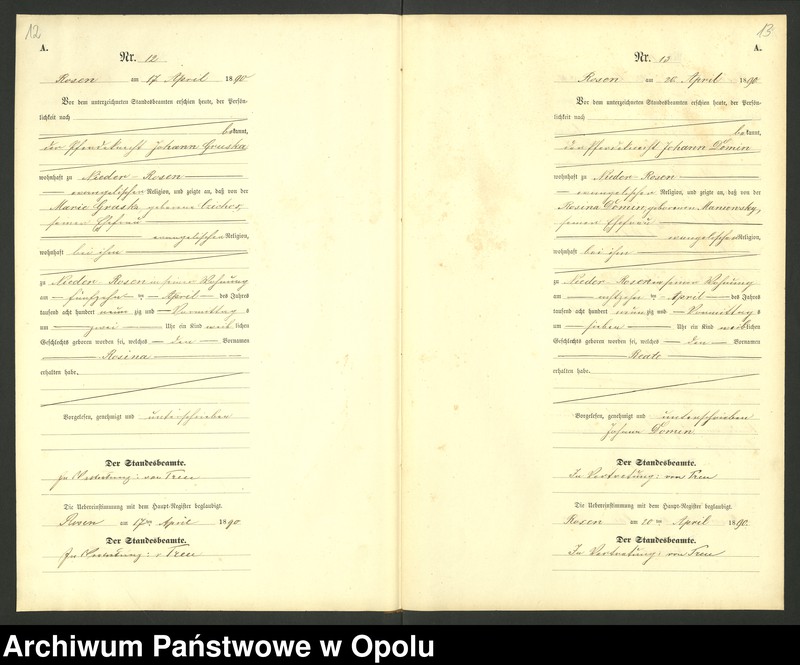 12
A.
Nr. 12
Rosen am 17 April 1890
Vor dem unterzeichneten Standesbeamten erschien heute, der Persön-
lichkeit nach
bekannt,
der Pferdeknecht Johann Gruska
wohnhaft zu Nieder-Rosen
evangelischer Religion, und zeigte an, daß von der
Marie Gruska geborene
seiner Ehefrau
evangelischer Religion,
wohnhaft bei ihm
zu Nieder Rosen in seiner Wohnung
am fünfzehn ten April des Jahres
tausend acht hundert neun zig und Vormittag s
um zwei Uhr ein Kind weib lichen
Geschlechts geboren worden sei, welches den Vornamen
Rosina
erhalten habe.
Vorgelesen, genehmigt und unterschrieben
Der Standesbeamte.
In Vertretung: von Treu
Die Uebereinstimmung mit dem Haupt-Register beglaubigt.
Rosen am 17ten April 1890.
Der Standesbeamte.
In Vertretung: v Treu
13
A.
Nr. 13
Rosen am 20 April 1890
Vor dem unterzeichneten Standesbeamten erschien heute, der Persön-
lichkeit nach
bekannt,
der Pferdeknecht Johann Domin
wohnhaft zu Nieder-Rosen
evangelischer Religion, und zeigte an, daß von der
Rosina Domin, geborenen
seiner Ehefrau
evangelischer Religion,
wohnhaft bei ihm
zu Nieder-Rosen in seiner Wohnung
am achtzehn ten April des Jahres
tausend acht hundert neun zig und Vormittag s
um sieben Uhr ein Kind weib lichen
Geschlechts geboren worden sei, welches den Vornamen
Beate
erhalten habe.
Vorgelesen, genehmigt und unterschrieben
Johann Domin
Der Standesbeamte.
In Vertretung: von Treu
Die Uebereinstimmung mit dem Haupt-Register beglaubigt.
Rosen am 20ten April 1890.
Der Standesbeamte.
In Vertretung: von Treu
Archiwum Państwowe w Opolu